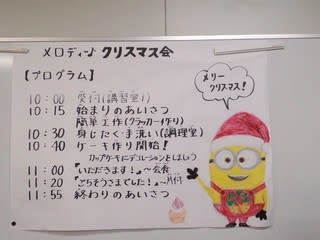 メロディー♪ クリスマス会
【プログラム】
10:00 受付(講習室1)
10:15 始まりのあいさつ
簡単工作(クラッカー作り)
10:30 身じたく・手洗い(調理室)
10:40 ケーキ作り開始!
カップケーキにデコレーションをしましょう
11:00 「いただきます!」〜会食
11:20 「ごちそうさまでした!」〜片付
11:55 終わりのあいさつ
メリー
クリスマス!